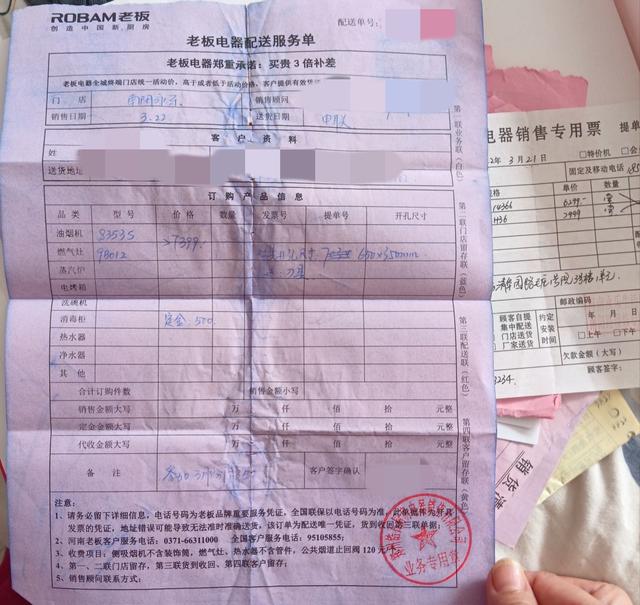 ROBAM老板
创造中国新厨房
配送单号:
老板电器配送服务单
老板电器郑重承诺:买贵3倍补差
老板电器全城终端门店统一活动价,高于或者低于活动价格,客户提供有效凭
门 店
销售顾问
销售日期 3.22 送货日期 电联
客 户 资 料
姓
送货地址
订 购 产 品 信 息
品 类 型 号 价格 数量 发票号 提单号 开孔尺寸
油烟机 8353S
燃气灶 9B012 7399 650×350mm
蒸汽炉
电烤箱
洗碗机
消毒柜 定金:500
热水器
净水器
其 他
合计订购件数 销售金额小写
销售金额大写 万 仟 佰 拾 元整
定金金额大写 万 仟 佰 拾 元整
代收金额大写 万 仟 佰 拾 元整
备 注 客户签字确认
注意:
1、请务必留下详细信息,电话号为老板品牌重要服务凭证,全国联保以电话号码为准,此单据作为开具
发票的凭证,地址错误可能导致无法准时准确送货,该订单为配送唯一凭证,货到收回第三联单据;
2、河南老板客户服务电话:0371-66311000 全国客户服务电话:95105855;
3、收费项目:侧吸烟机不含装饰筒,燃气灶、热水器不含管件,公共烟道止回阀120元/个
4、第一、二联门店留存,第三联货到收回、第四联客户留存;
5、销售顾问联系方式:
业务专用章
第一联业务联(白色)
第二联门店留存联(蓝色)
第三联配送联(红色)
第四联客户留存联(黄色)
电器销售专用票 提单
2年3月21日 □特价机 □会
固定及移动电话
规格 单价 数
6299
H36 2999
邮政编码
顾客自提
集中配送
门店送货
厂家送货
约定安装时间
年 月 日
□上午 □下午
欠款金额(大写)
顾客签字:
3234.
销货清